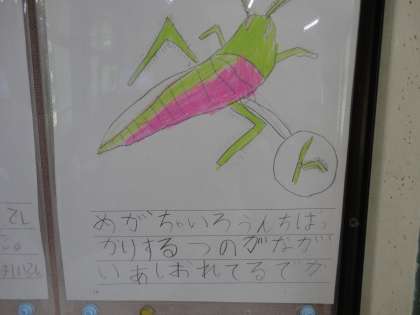 めがちゃいろうんちはっ
かりするつのがながが
いあしおれてるでか